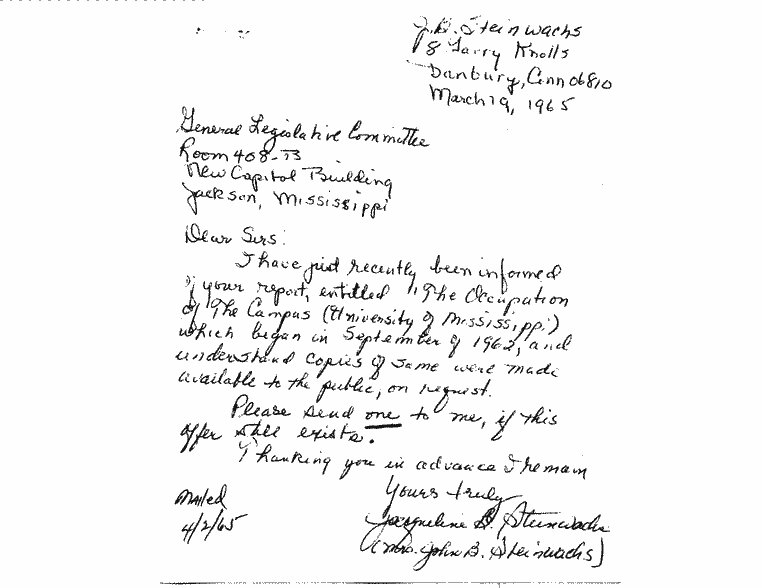 J.B. Steinwachs
8 Tarry Knolls
Danbury, Conn 06810
March 19, 1965
General Legislative Committee
Room 408-B
New Capitol Building
Jackson, Mississippi
Dear Sirs:
I have just recently been informed
of your report, entitled "The Occupation
of The Campus (University of Mississippi)
which began in September of 1962, and
understand copies of same were made
available to the public, on request.
Please send one to me, if this
offer still exists.
Thanking you in advance I remain
Yours truly
Jacqueline B. Steinwachs
(Mrs. John B. Steinwachs)
Mailed
4/2/65